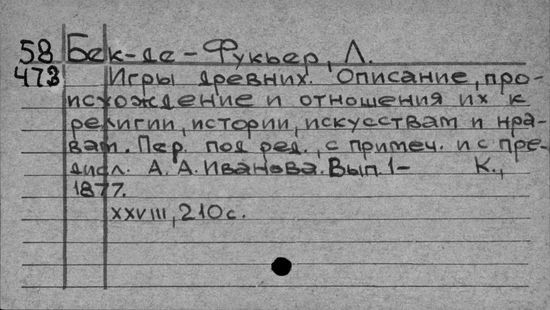 58 Бек-де-Фукьер, Л.
473 Игры древних. Описание, про-
исхождение и отношения их к
религии, истории, искусствам и нра-
вам. Пер. под ред., с примеч. и с пре-
дисл. А. А. Иванова. Вып. 1- К.,
1877.
XXVIII, 210 с.